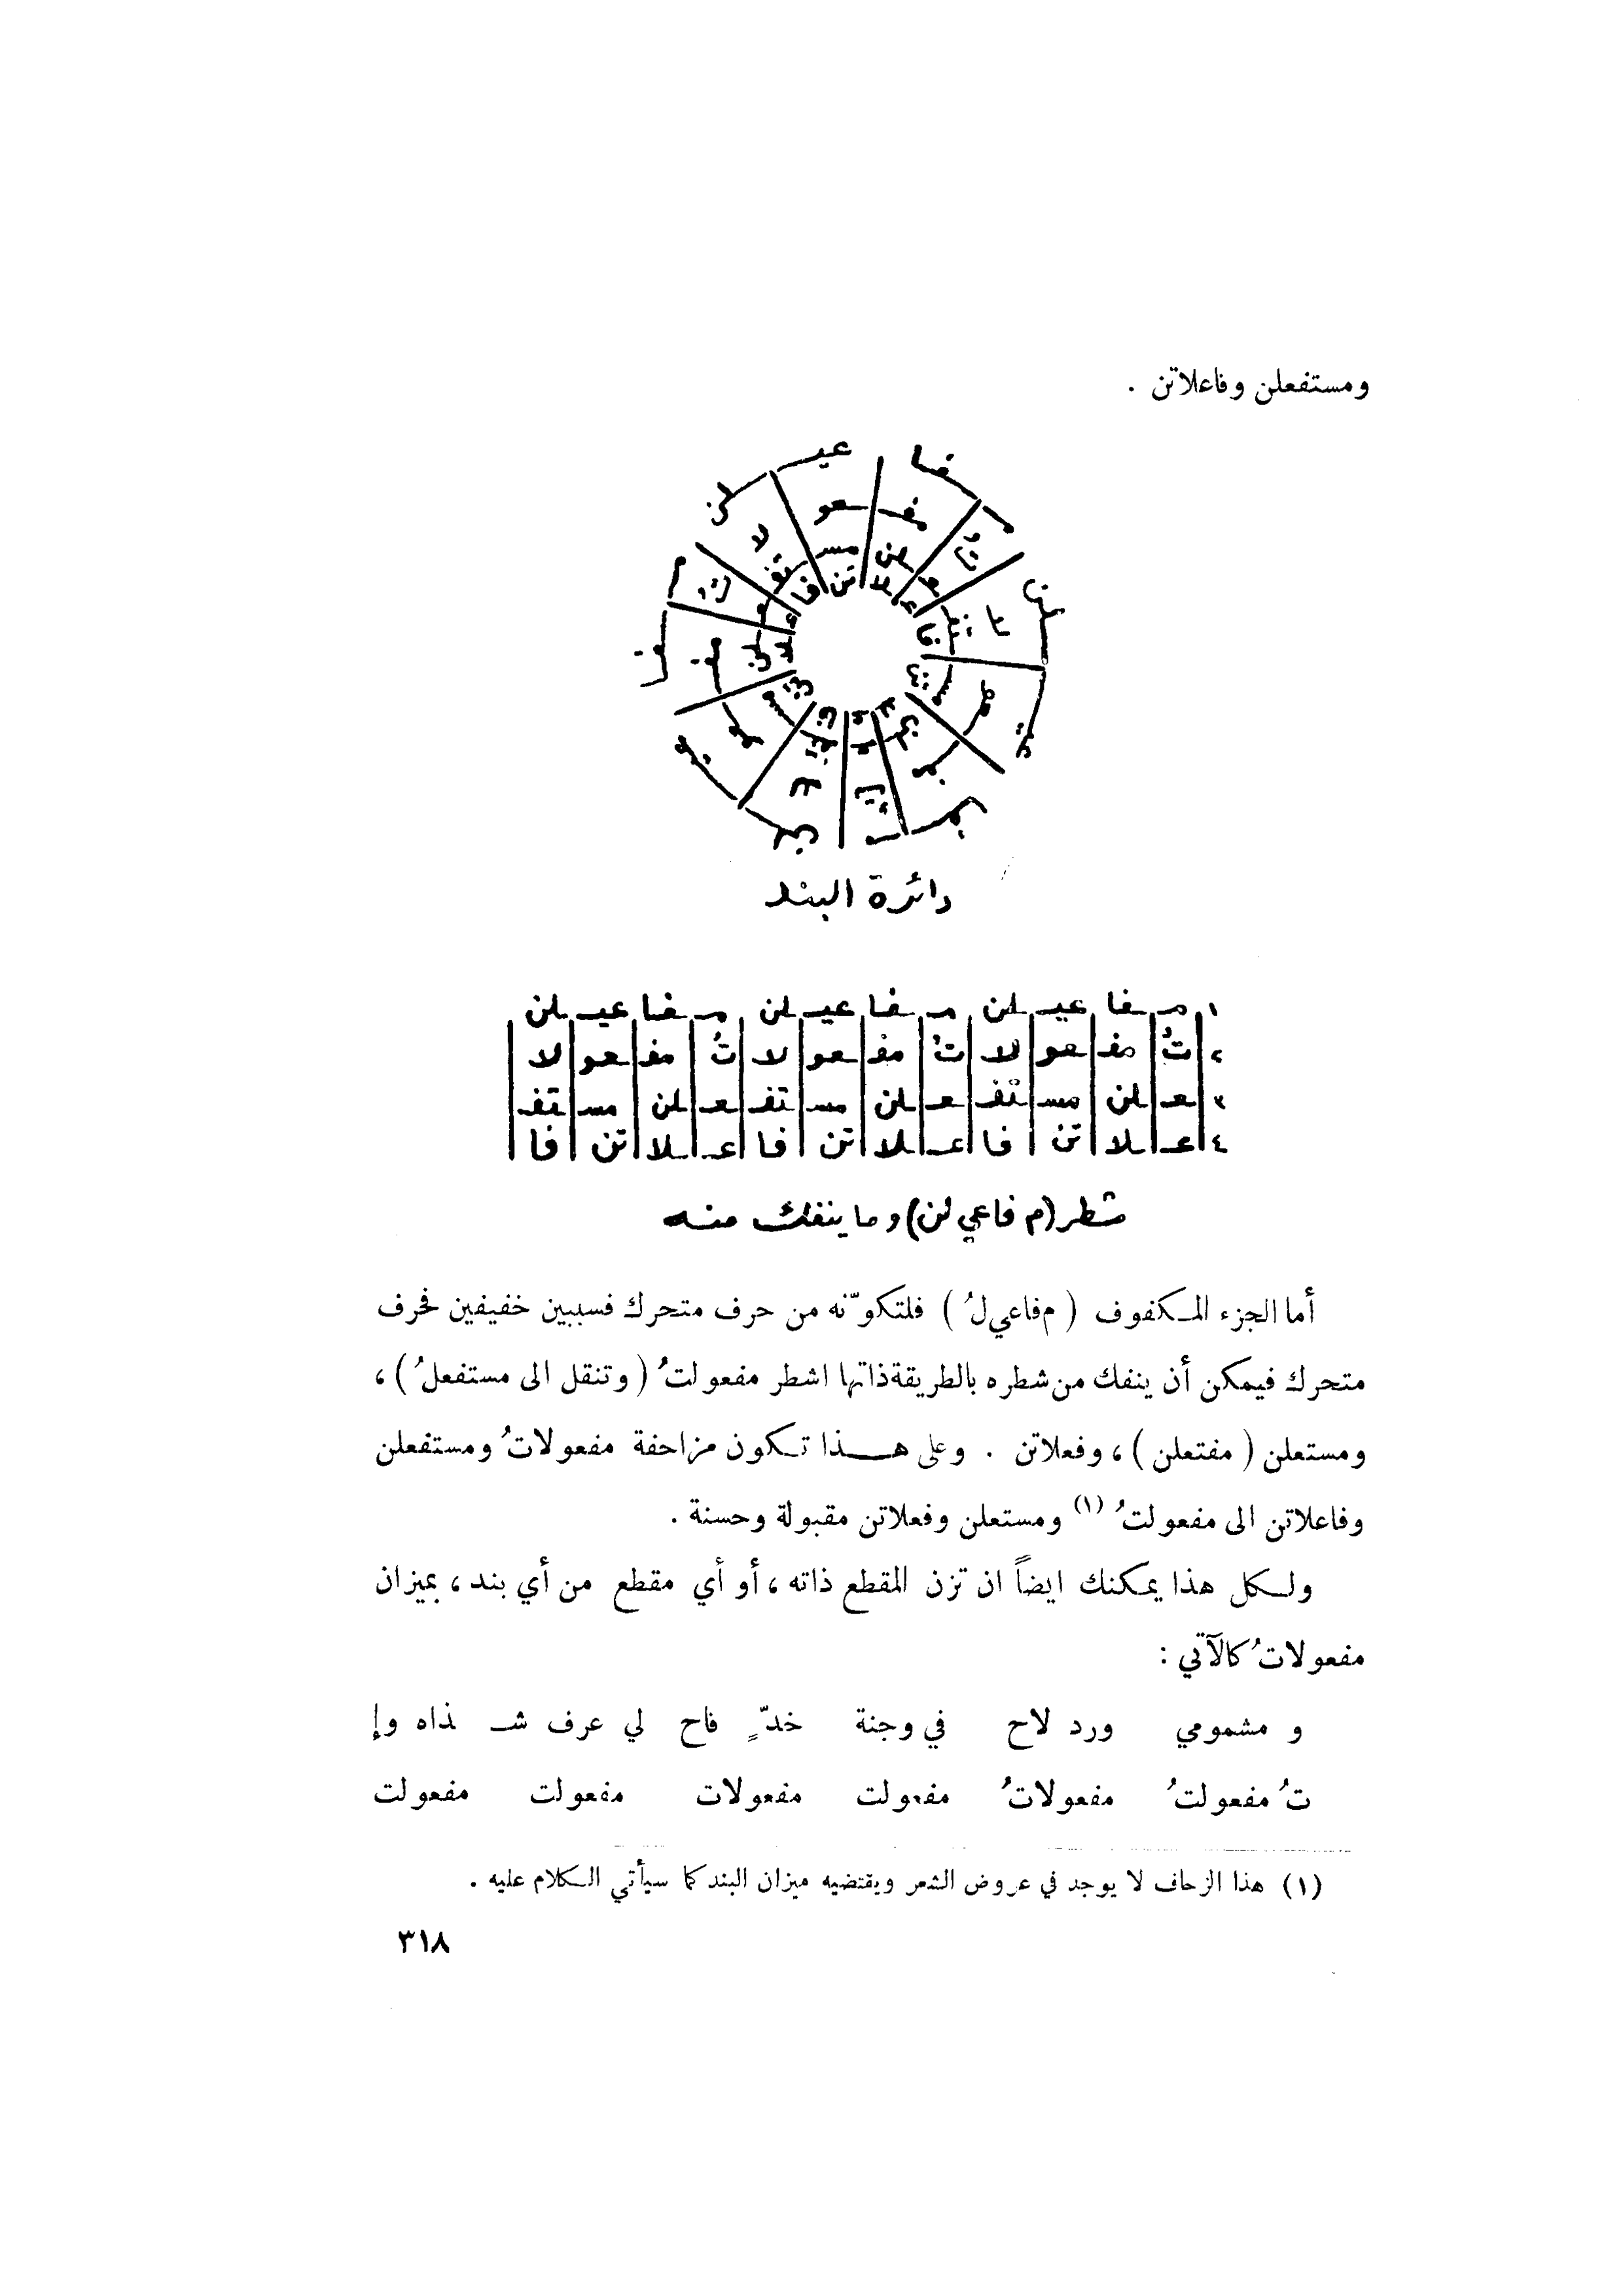 ومستفعلن وفاعلاتن .
م فا عيـ لن م فا عيـ لن م فا عيـ لن
تُ مفـ عو لا تُ مفـ عو لا تُ مفـ عو لا
عـ لن مسـ تفـ عـ لن مسـ تفـ عـ لن مسـ تفـ
عـ لا تن فا عـ لا تن فا عـ لا تن فا
دائرة البند
١ مـ ـفا عيـ لن مـ ـفا عيـ لن مـ ـفا عيـ لن
٢ تُ مفـ ـعو لا تُ مفـ ـعو لا تُ مفـ ـعو لا
٣ عـ لن مسـ تفـ عـ لن مسـ تفـ عـ لن مسـ تفـ
٤ عـ لا تن فا عـ لا تن فا عـ لا تن فا
شطر (م فاعي لن) وما ينفك منه
أما الجزء المكفوف ( م‌فاعي‌لُ ) فلتكوّنه من حرف متحرك فسببين خفيفين فحرف
متحرك فيمكن أن ينفك من شطره بالطريقة ذاتها اشطر مفعولتُ ( وتنقل الى مستفعلُ ) ،
ومستعلن ( مفتعلن ) ، وفعلاتن . وعلى هذا تكون مزاحفة مفعولاتُ ومستفعلن
وفاعلاتن الى مفعولتُ (١) ومستعلن وفعلاتن مقبولة وحسنة .
ولكل هذا يمكنك ايضاً ان تزن المقطع ذاته ، أو أي مقطع من أي بند ، بميزان
مفعولاتُ كالآتي :
و مشمومي ورد لاح في وجنة خدٍّ فاح لي عرف شـ ـذاه وإ
تُ مفعولتُ مفعولاتُ مفعولت مفعولات مفعولت مفعولت
(١) هذا الزحاف لا يوجد في عروض الشعر ويقتضيه ميزان البند كما سيأتي الكلام عليه .
٣١٨